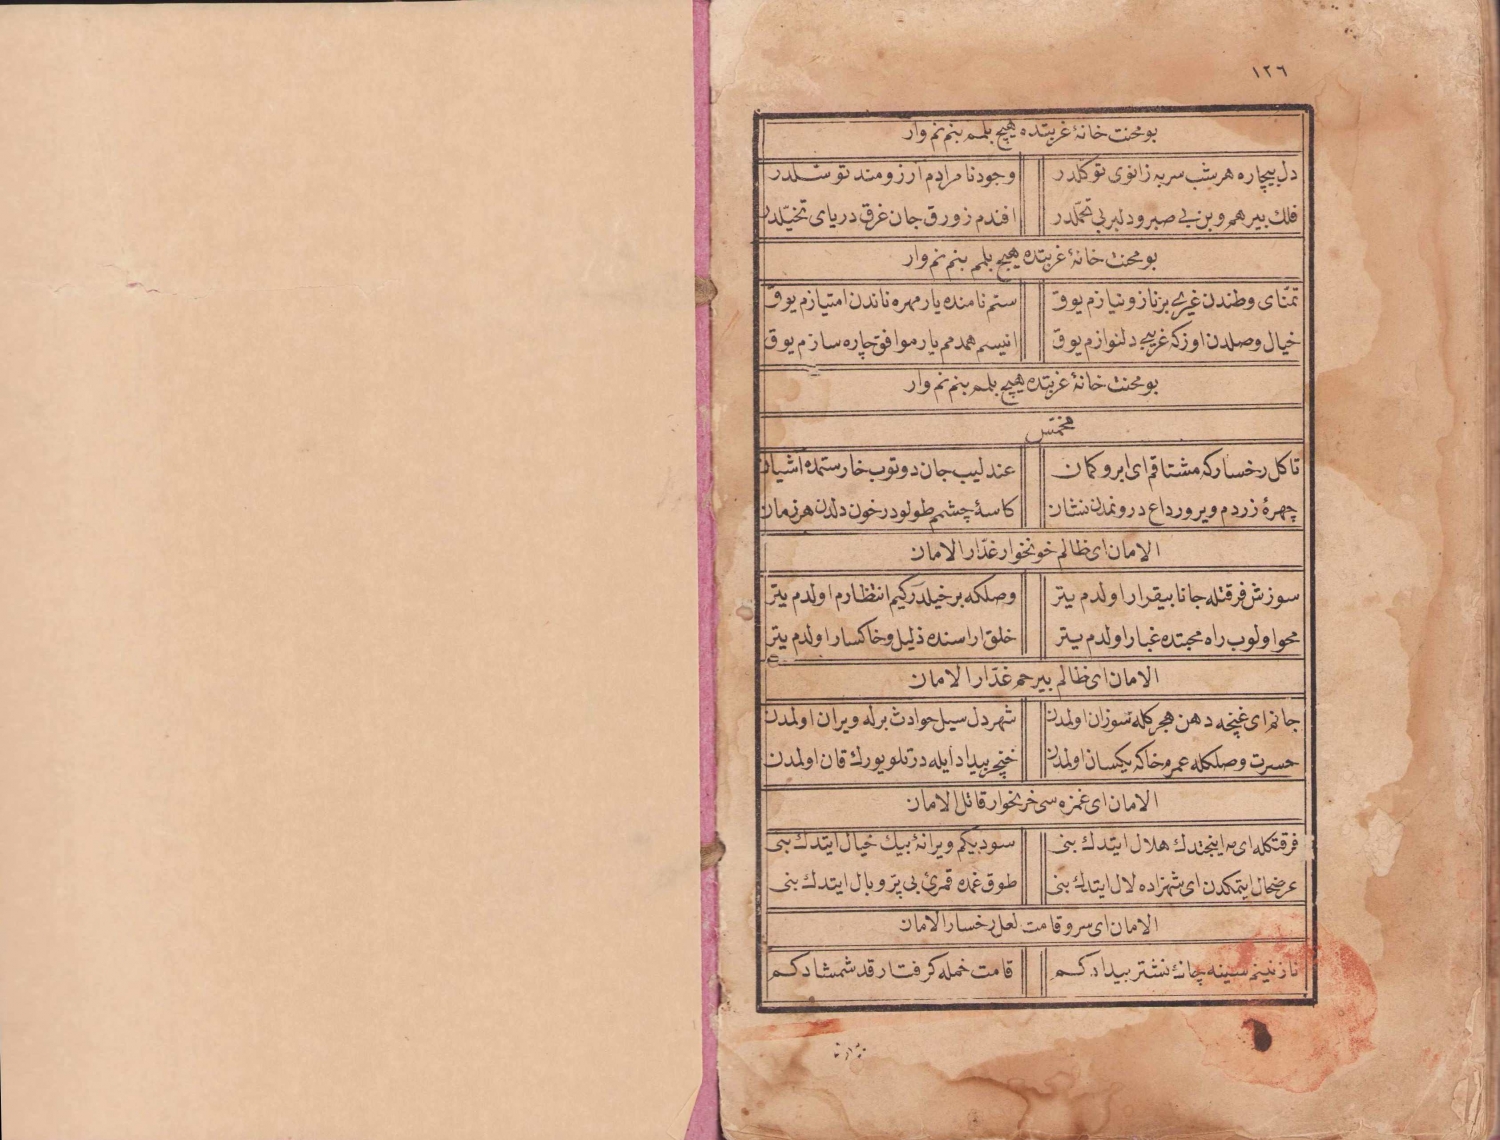 ١٢٦
بو محنت خانهٔ غربتده هیچ بلمم بنم نم وار
دل بیچاره هر شب سر به زانوی توکلدر وجود نامرادم آرزومند توسلدر
فلك بیرهم و بن بی صبر و دلبر بی تحمّلدر افندم زورق جان غرق دریای تخیّلدر
بو محنت خانهٔ غربتده هیچ بلمم بنم نم وار
تمنّای وطندن غیری بر ناز و نیازم یوق ستم نامنده یار مهره ناندن امتیازم یوق
خیال وصلدن اوزکه غریبی دلنوازم یوق انیسم همدمم یار موافق چاره سازم یوق
بو محنت خانهٔ غربتده هیچ بلمم بنم نم وار
مخمّس
تا کل رخسارکه مشتاقم ای ابرو کمان عندلیب جان دوتوب خار ستمده آشیان
چهرهٔ زردم ویرور داغ درونمدن نشان کاسهٔ چشمم طولودر خون دلدن هر زمان
الامان ای ظالم خونخوار غدّار الامان
سوزش فرقتله جانا بیقرار اولدم یتر وصلکه بر خیلدر کیم انتظارم اولدم یتر
محو اولوب راه محبتده غبار اولدم یتر خلق اراسنده ذلیل و خاکسار اولدم یتر
الامان ای ظالم بیرحم غدّار الامان
جانم ای غنچه دهن هجرکله سوزان اولمدن شهر دل سیل حوادث برله ویران اولمدن
حسرت وصلکله عمرم خاکه یکسان اولمدن خنجر بیداد ایله درتلو یورك قان اولمدن
الامان ای غمزه سی خونخوار قاتل الامان
فرقتکله ای مه اینجتدك هلال ایتدك بنی سودبیکم ویرانهٔ بیك خیال ایتدك بنی
عرضحال ایتمکدن ای شهزاده لال ایتدك بنی طوق غمده قمریٔ بی پرّ و بال ایتدك بنی
الامان ای سرو قامت لعل رخسار الامان
نازنینم سینه چاك نشتر بیدادکم قامت خمله کرفتار قد شمشادکم